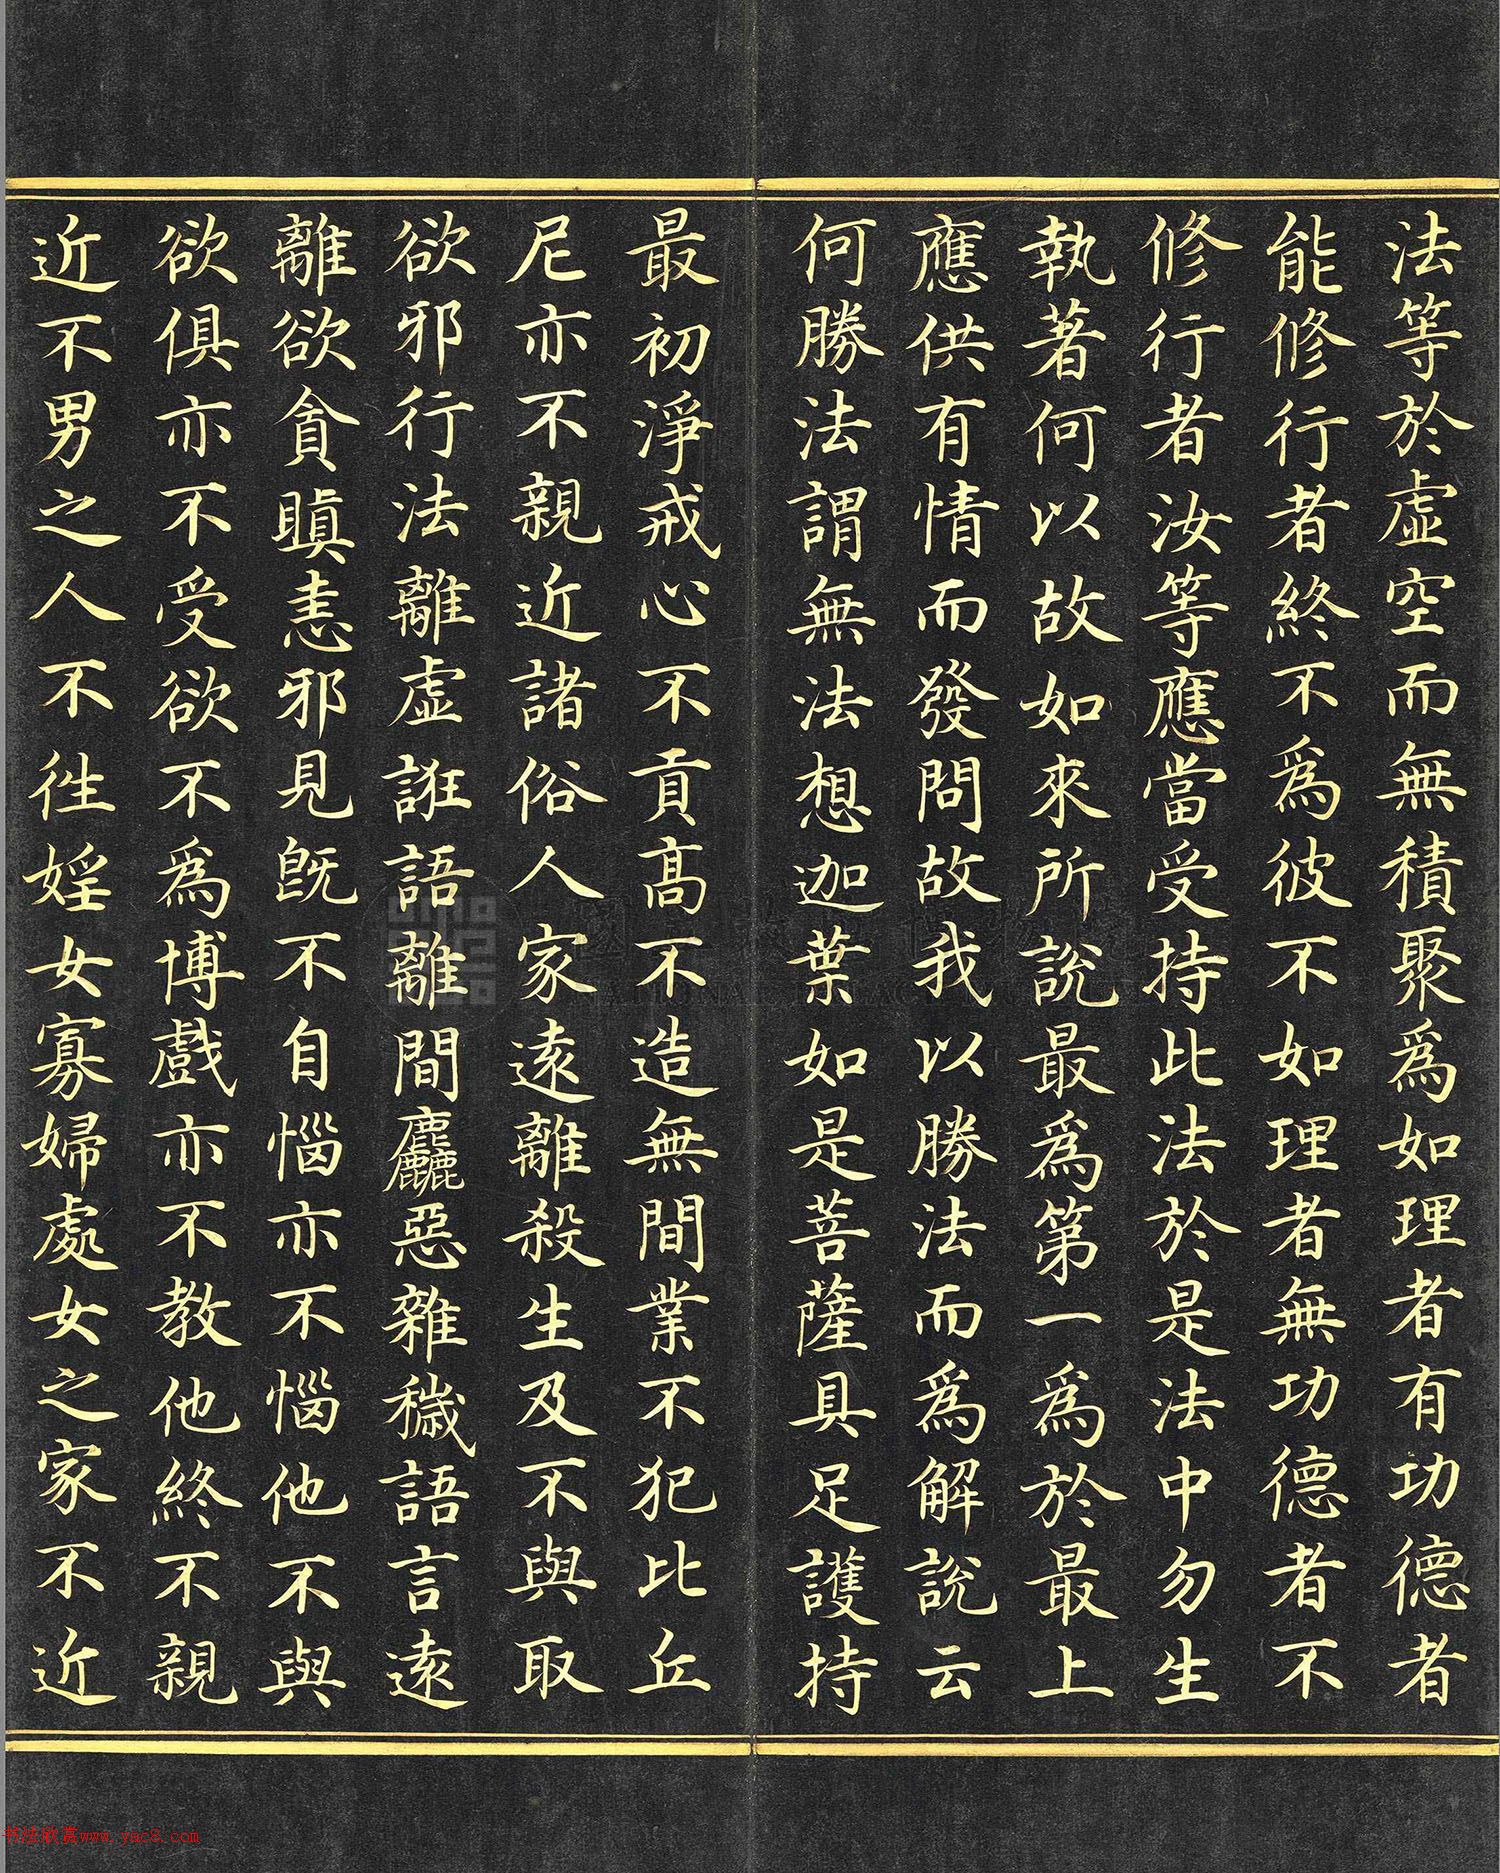 法等於虛空而無積聚為如理者有功德者
能修行者終不為彼不如理者無功德者不
修行者汝等應當受持此法於是法中勿生
執著何以故如來所說最為第一為於最上
應供有情而發問故我以勝法而為解說云
何勝法謂無法想迦葉如是菩薩具足護持
最初淨戒心不貢高不造無間業不犯比丘
尼亦不親近諸俗人家遠離殺生及不與取
欲邪行法離虛誑語離間麤惡雜穢語言遠
離欲貪瞋恚邪見既不自惱亦不惱他不與
欲俱亦不受欲不為博戲亦不教他終不親
近不男之人不往婬女寡婦處女之家不近
书法欣赏www.yac8.com